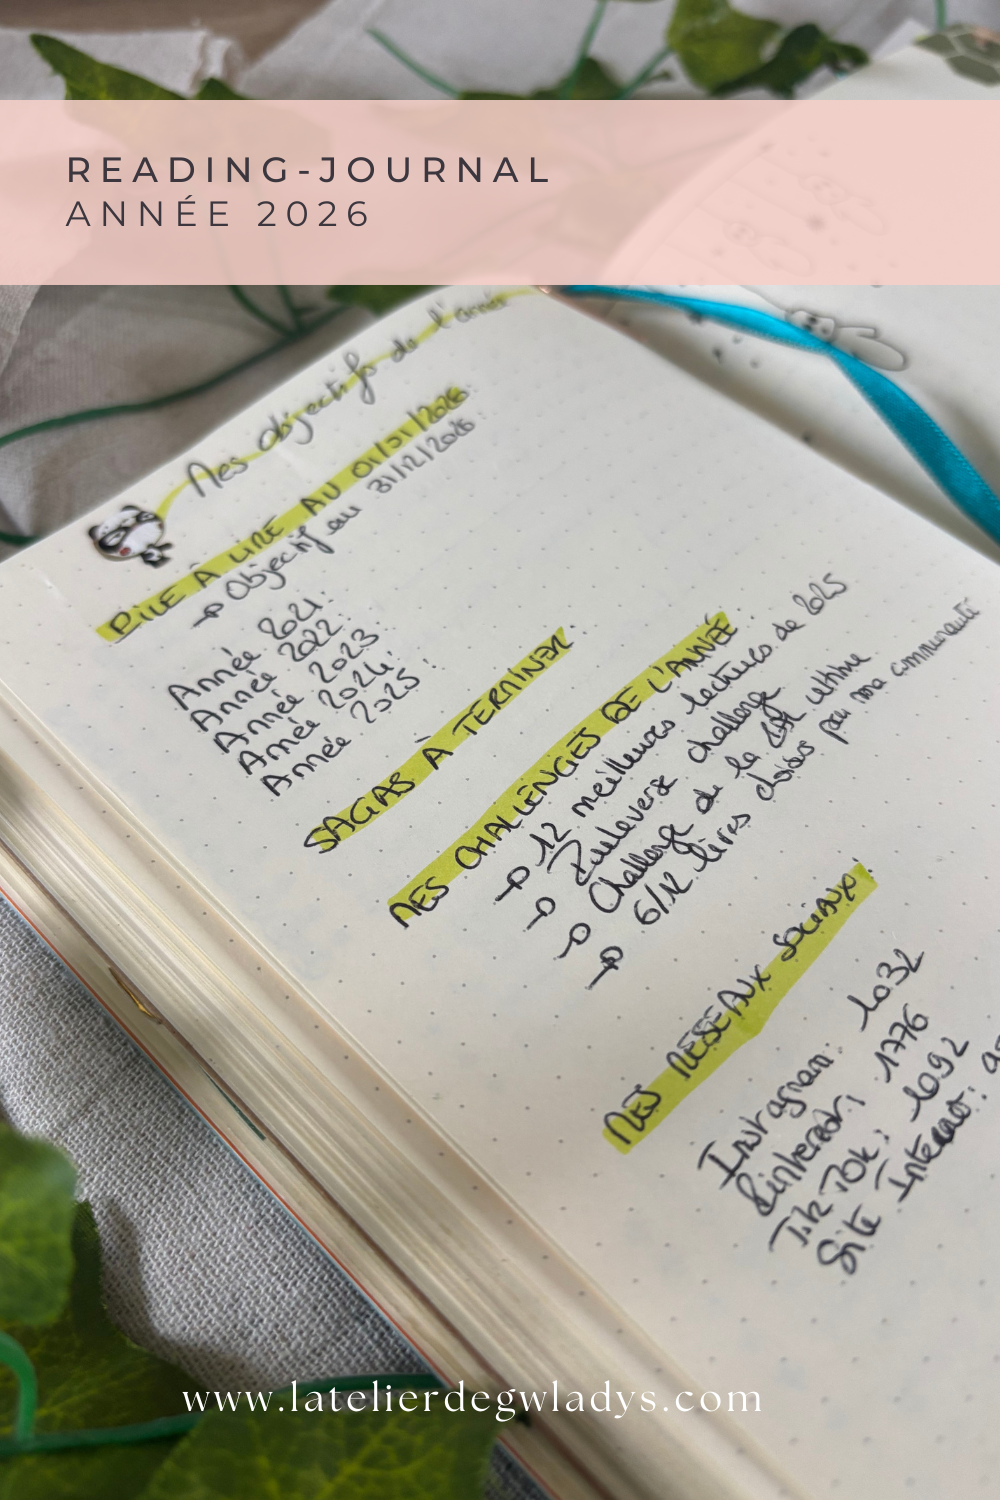 READING-JOURNAL
ANNÉE 2026
Mes objectifs de l'année
PILE À LIRE AU 01/01/2026:
→ Objectif au 31/12/2026:
Année 2021:
Année 2022:
Année 2023:
Année 2024:
Année 2025:
SAGAS À TERMINER:
MES CHALLENGES DE L'ANNÉE:
→ 12 meilleures lectures de 2025
→ challenge
→ Challenge de la ultime
→ 6/12 livres choisis par ma communauté
MES RÉSEAUX SOCIAUX:
Instagram: 1032
Pinterest: 1776
TikTok: 1092
Site Internet:
www.latelierdegwladys.com